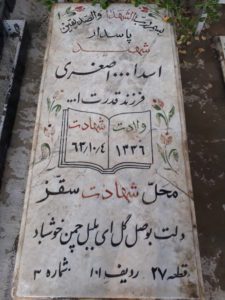 بسم رب الشهدا و الصدیقین
پاسدار
شهید
اسدا... اصغری
فرزند قدرت ا...
ولادت شهادت
۱۳۳۶ ۶۳/۱۰/۴
محل شهادت سقز
دلت بوصل گل ای بلبل چمن خوشباد
قطعه ۲۷ ردیف ۱۰۱ شماره ۳